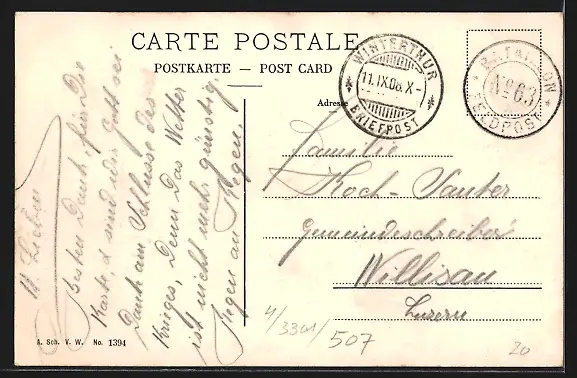 CARTE POSTALE
POSTKARTE — POST CARD
Adresse
WINTERTHUR
11.IX.08.X-
BRIEFPOST
BATAILLON
No 63
FELDPOST
Familie
Hoch-Sauter
Gemeindeschreiber
Willisau
Luzern
M. Lieben
Besten Dank für Die
Karte, & sind wir Gott sei
Dank am Schlusse des
Krieges, Denn Das Wetter
ist nicht mehr günstig.
Regen an Regen.
A. Sch. V. W. No. 1394
4/3301/507
20